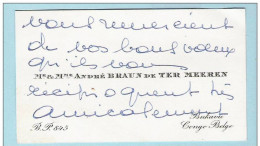 vous remercient
de vos bons voeux
qu'ils vous
Mr & Mme ANDRÉ BRAUN DE TER MEEREN
réciproquent très
amicalement
Bukavu
B.P. 545 Congo-Belge